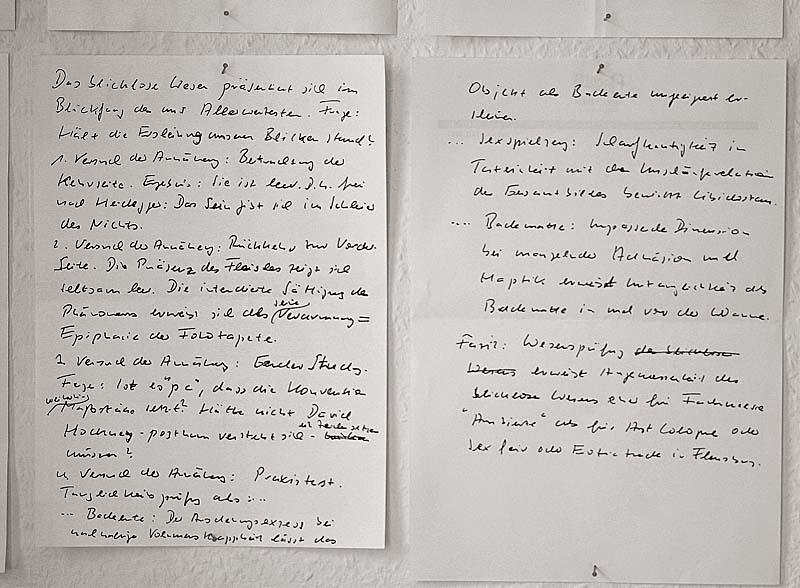 Das blicklose Wesen präsentiert sich im
Blickfang der uns Allerwertesten. Frage:
Hält die Erscheinung unseren Blicken stand?
1. Versuch der Annäherung: Betrachtung der
Kehrseite. Ergebnis: Sie ist leer. D.h. frei
nach Heidegger: Das Sein gibt sich im Schleier
des Nichts.
2. Versuch der Annäherung: Rückkehr zur Vorder-
Seite. Die Präsenz des Fleisches zeigt sich
seltsam leer. Die intendierte Sättigung des
Phänomens erweist sich als seine Verarmung =
Epiphanie der Fototapete.
3. Versuch der Annäherung: Gender Studies.
Frage: Ist es "pc", dass die Konvention
weibliche Maßstäbe setzt? Hätte nicht David
Hockney - posthum versteht sich - ein Zeichen setzen
müssen?
4. Versuch der Annäherung: Praxistest.
Tauglichkeitsprüfung als ...
... Badeente: Der bei
Volumen lässt das
Objekt als Badeente ungeeignet er-
scheinen.
... Sexspielzeug: in
Tateinheit mit der
des Gesamtbildes bewirkt
.... Badematte: Unpassende Dimension
bei mangelnder Adhäsion und
Haptik erweist Untauglichkeit als
Badematte in und vor der Wanne.
Fazit: Wesensprüfung der blicklosen
Wesens erweist Angemessenheit des
blicklosen Wesens eher für Fachmesse
"Anuga" als für Art Cologne oder
Sex fair oder Erotictrade in Flensburg.